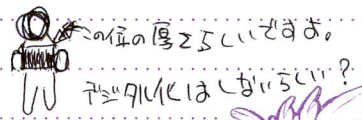 この位の厚さらしいですよ。
デジタル化はしないらしい？